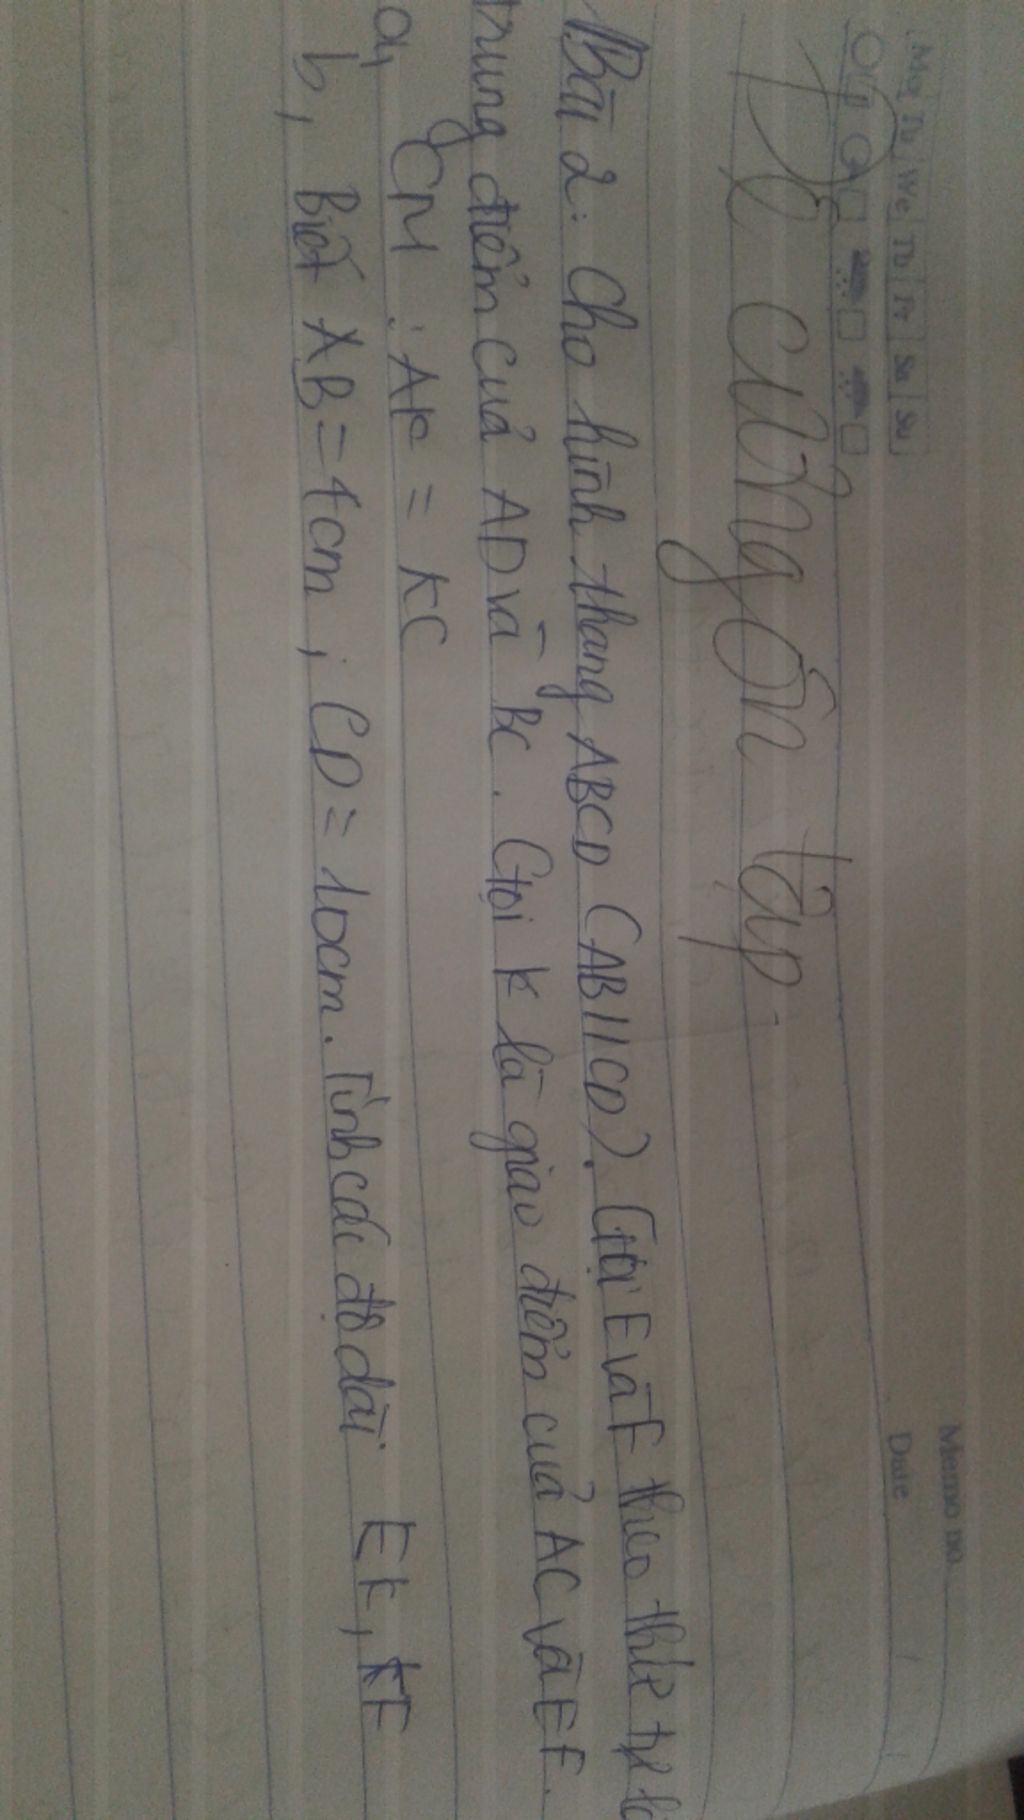 Mo Tu We Th Fr Sa Su
Memo no.
Date / /
Đề cương ôn tập
Bài 2: Cho hình thang ABCD (AB//CD). Gọi E và F theo thứ tự là
trung điểm của AD và BC. Gọi K là giao điểm của AC và EF.
a, CM: AK = KC
b, Biết AB = 4cm, CD = 10cm. Tính các độ dài EK, KF